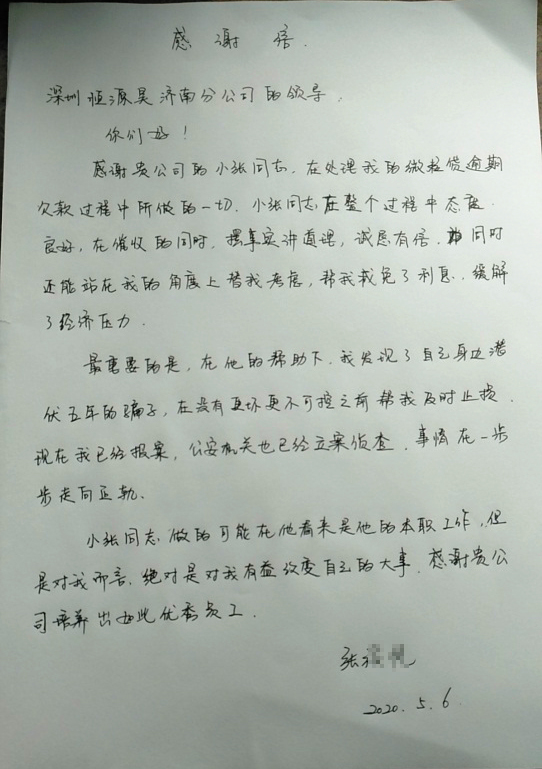 感谢信.
深圳恒源昊济南分公司的领导,
你们好!
感谢贵公司的小张同志.在处理我的微粒贷逾期
欠款过程中所做的一切.小张同志在整个过程中态度
良好,在催收的同时,摆事实讲道理,诚恳有信.同时
还能站在我的角度上替我考虑,帮我减免了利息.缓解
了经济压力.
最重要的是,在他的帮助下.我发现了自己身边潜
伏五年的骗子,在没有更坏更不可控之前帮我及时止损.
现在我已经报案,公安机关也已经立案侦查.事情在一步
步走向正轨.
小张同志做的可能在他看来是他的本职工作,但
是对我而言,绝对是对我有益改变自己的大事.感谢贵公
司培养出如此优秀员工.
张
2020.5.6